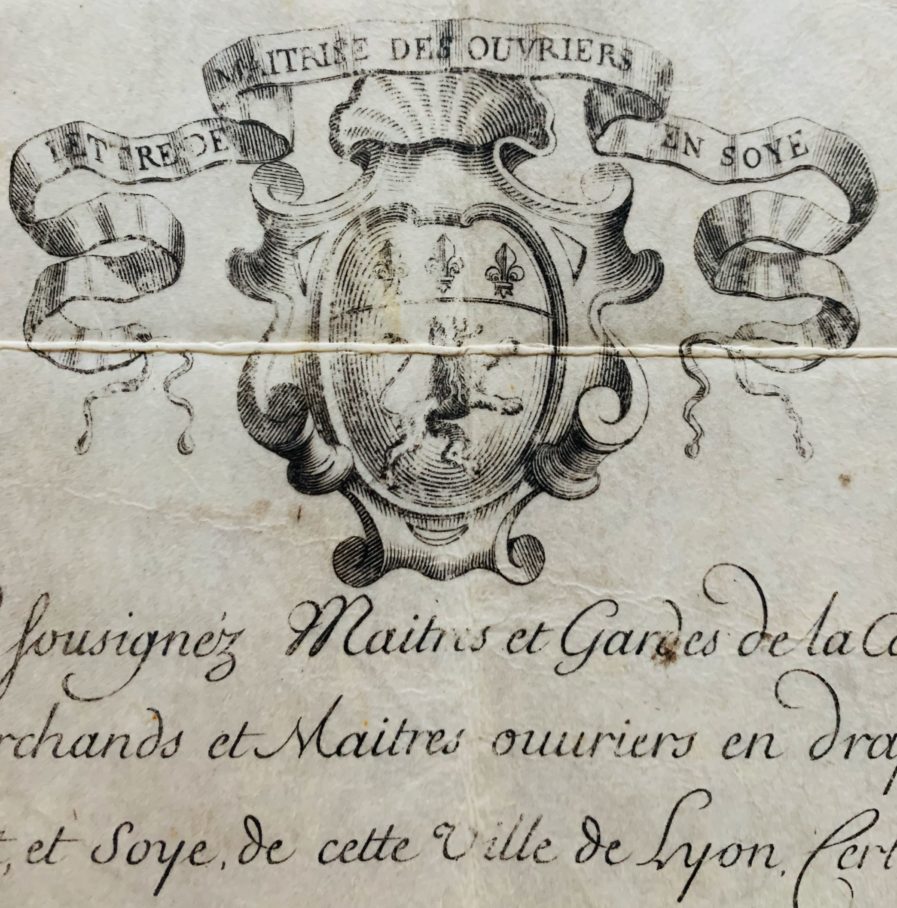 LETTRE DE MAITRISE DES OUVRIERS EN SOYE
sousignéz Maitres et Gardes de la Co
rchands et Maitres ouuriers en drap
t, et Soye, de cette Ville de Lyon, Cert